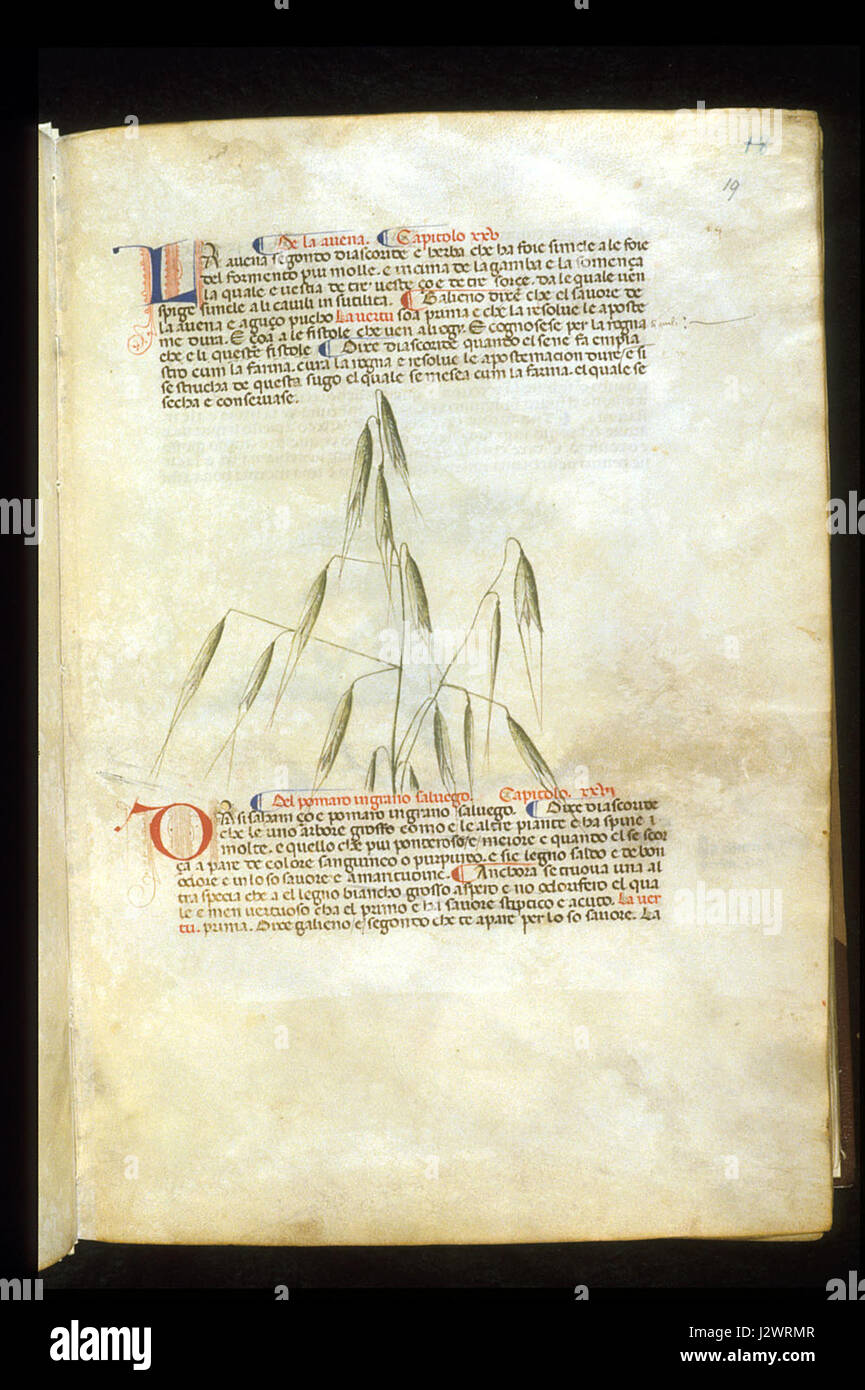 19
De la auena. Capitolo xxv
LA auena segondo diascoride e herba che ha foie simele a le foie
del formento piu molle. e in cima de la gamba e la somença
la quale e uestia de tre ueste ço e de tre scorçe. da le quale uen
spige simele a li cauili in sutilita. Galieno dixe che el sauore de
la auena e aguço pucho La uertu soa prima e che la resolue le aposte
me dura. E çoa a le fistole che uen a li ogi. E cognosese per la rogna
che e li queste fistole Dixe diascoride quando el sene fa empla
stro cum la farina. cura la rogna e resolue le apostemacion dure e si
se strucha de questa sugo el quale se mesea cum la farina. el quale se
secha e conseruase.
Del pomaro ingrano saluego. Capitolo. xxvi
DAsisaham ço e pomaro ingrano saluego. Dixe diascoride
che le uno arbore grosso como e le altre piante e ha spine
molte. e quello che piu ponderoso e meiore e quando el se scor
ça apare de colore sanguineo o purpurio. e si e legno saldo e de bon
odore e in lo so sauore e amaritudine. Anchora se truoua una al
tra specia che a el legno biancho grosso aspero e no odorifero el qua
le e men uertuoso cha el primo e ha sauore stiptico e acuto. La uer
tu. prima. Dixe galieno e segondo che te apare per lo so sauore. La
alamy
Image ID: J2WRMR
www.alamy.com